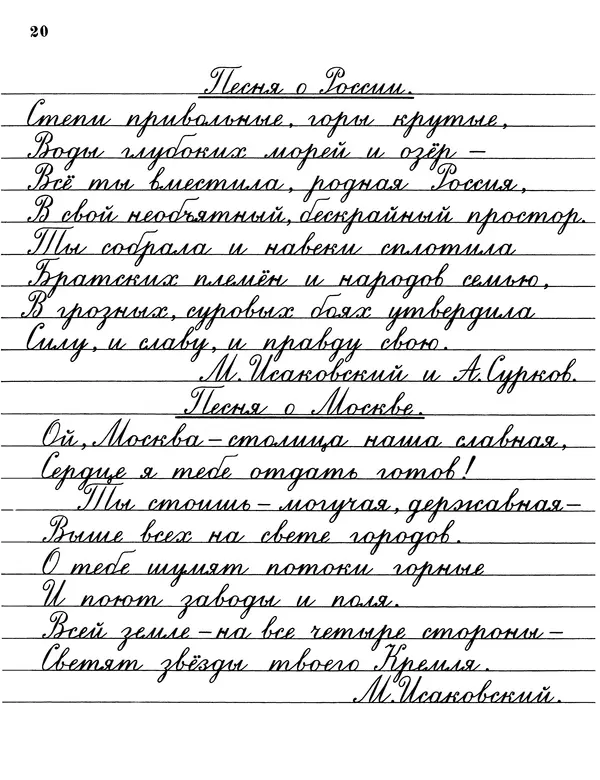 20
Песня о России.
Степи привольные, горы крутые,
Воды глубоких морей и озёр –
Всё ты вместила, родная Россия,
В свой необъятный, бескрайный простор.
Ты собрала и навеки сплотила
Братских племён и народов семью,
В грозных, суровых боях утвердила
Силу, и славу, и правду свою.
М. Исаковский и А. Сурков.
Песня о Москве.
Ой, Москва – столица наша славная,
Сердце я тебе отдать готов!
Ты стоишь – могучая, державная –
Выше всех на свете городов.
О тебе шумят потоки горные
И поют заводы и поля.
Всей земле – на все четыре стороны –
Светят звёзды твоего Кремля.
М. Исаковский.